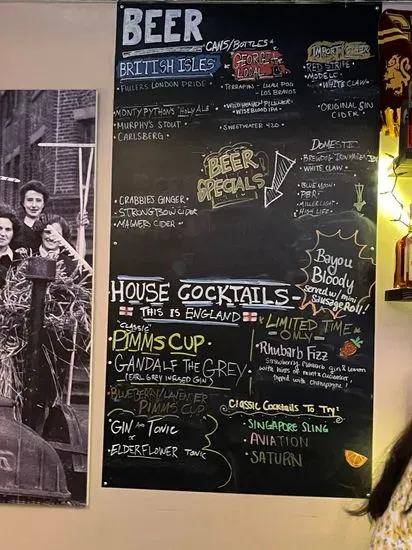 BEER
CANS/BOTTLES
BRITISH ISLES
FULLERS LONDON PRIDE
MONTY PYTHON'S HOLY ALE
MURPHY'S STOUT
CARLSBERG
CRABBIES GINGER
STRONGBOW CIDER
MAGNERS CIDER
GEORGIA
LOCAL
TERRAPIN - LUAU POG
- LOS BRAVOS
WILD HEAVEN PILSNER
WISEBLOOD IPA
SWEETWATER 420
IMPORT
RED STRIPE
MODELO
WHITE CLAW
ORIGINAL SIN
CIDER
DOMESTIC
BREWDOG
WHITE CLAW
BLUE MOON
PBR
MILLER LIGHT
HIGH LIFE
BEER
SPECIALS
Bayou
Bloody
served w/ mini
Sausage Roll!
HOUSE COCKTAILS
THIS IS ENGLAND
"CLASSIC"
PIMMS CUP
GANDALF THE GREY
(EARL GREY INFUSED GIN)
BLUEBERRY LAVENDER
PIMMS CUP
GIN AND TONIC
or
ELDERFLOWER TONIC
LIMITED TIME
ONLY
Rhubarb Fizz
Strawberry, rhubarb gin & lemon
with hints of mint & cucumber
topped with champagne!
Classic Cocktails To Try!
SINGAPORE SLING
AVIATION
SATURN